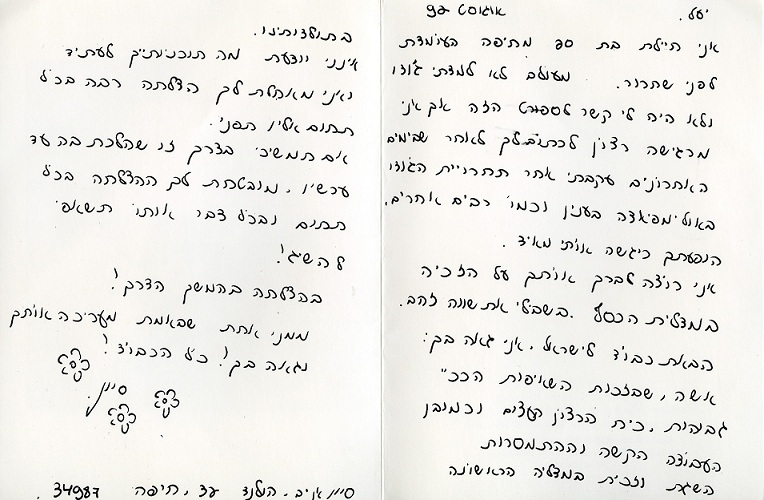 אוגוסט 92
יעל.
אני חיילת בת 20 מחיפה העומדת
לפני שחרור. מעולם לא למדתי ג'ודו
ולא היה לי קשר לספורט הזה אך אני
מרגישה רצון לכתוב לך לאחר שבימים
האחרונים עקבתי אחר תחרויית הג'ודו
באולימפיאדה בענין וכמו רבים אחרים,
הופעתך ריגשה אותי מאוד.
אני רוצה לברך אותך על הזכיה
במדלית הכסף. בשבילי את שווה זהב.
הבאת כבוד לישראל, אני גאה בך:
אשה, שבזכות השאיפות הכ"כ
גבוהות, כח הרצון העצום וכמובן
העבודה הקשה וההתמסרות
השגת וזכית במדליה הראשונה
בתולדותינו.
אינני יודעת מה תוכניותיך לעתיד
ואני מאחלת לך הצלחה רבה בכל
תחום אליו תפני.
אם תמשיכי בדרך זו שהלכת בה עד
עכשיו, מובטחת לך ההצלחה בכל
תחום ובכל דבר אותו תשאפי
להשיג!
בהצלחה בהמשך הדרך!
ממני אחת שבאמת מעריכה אותך
וגאה בך! כל הכבוד!
סיון
סיון אביב, הולנד 23, חיפה 34987